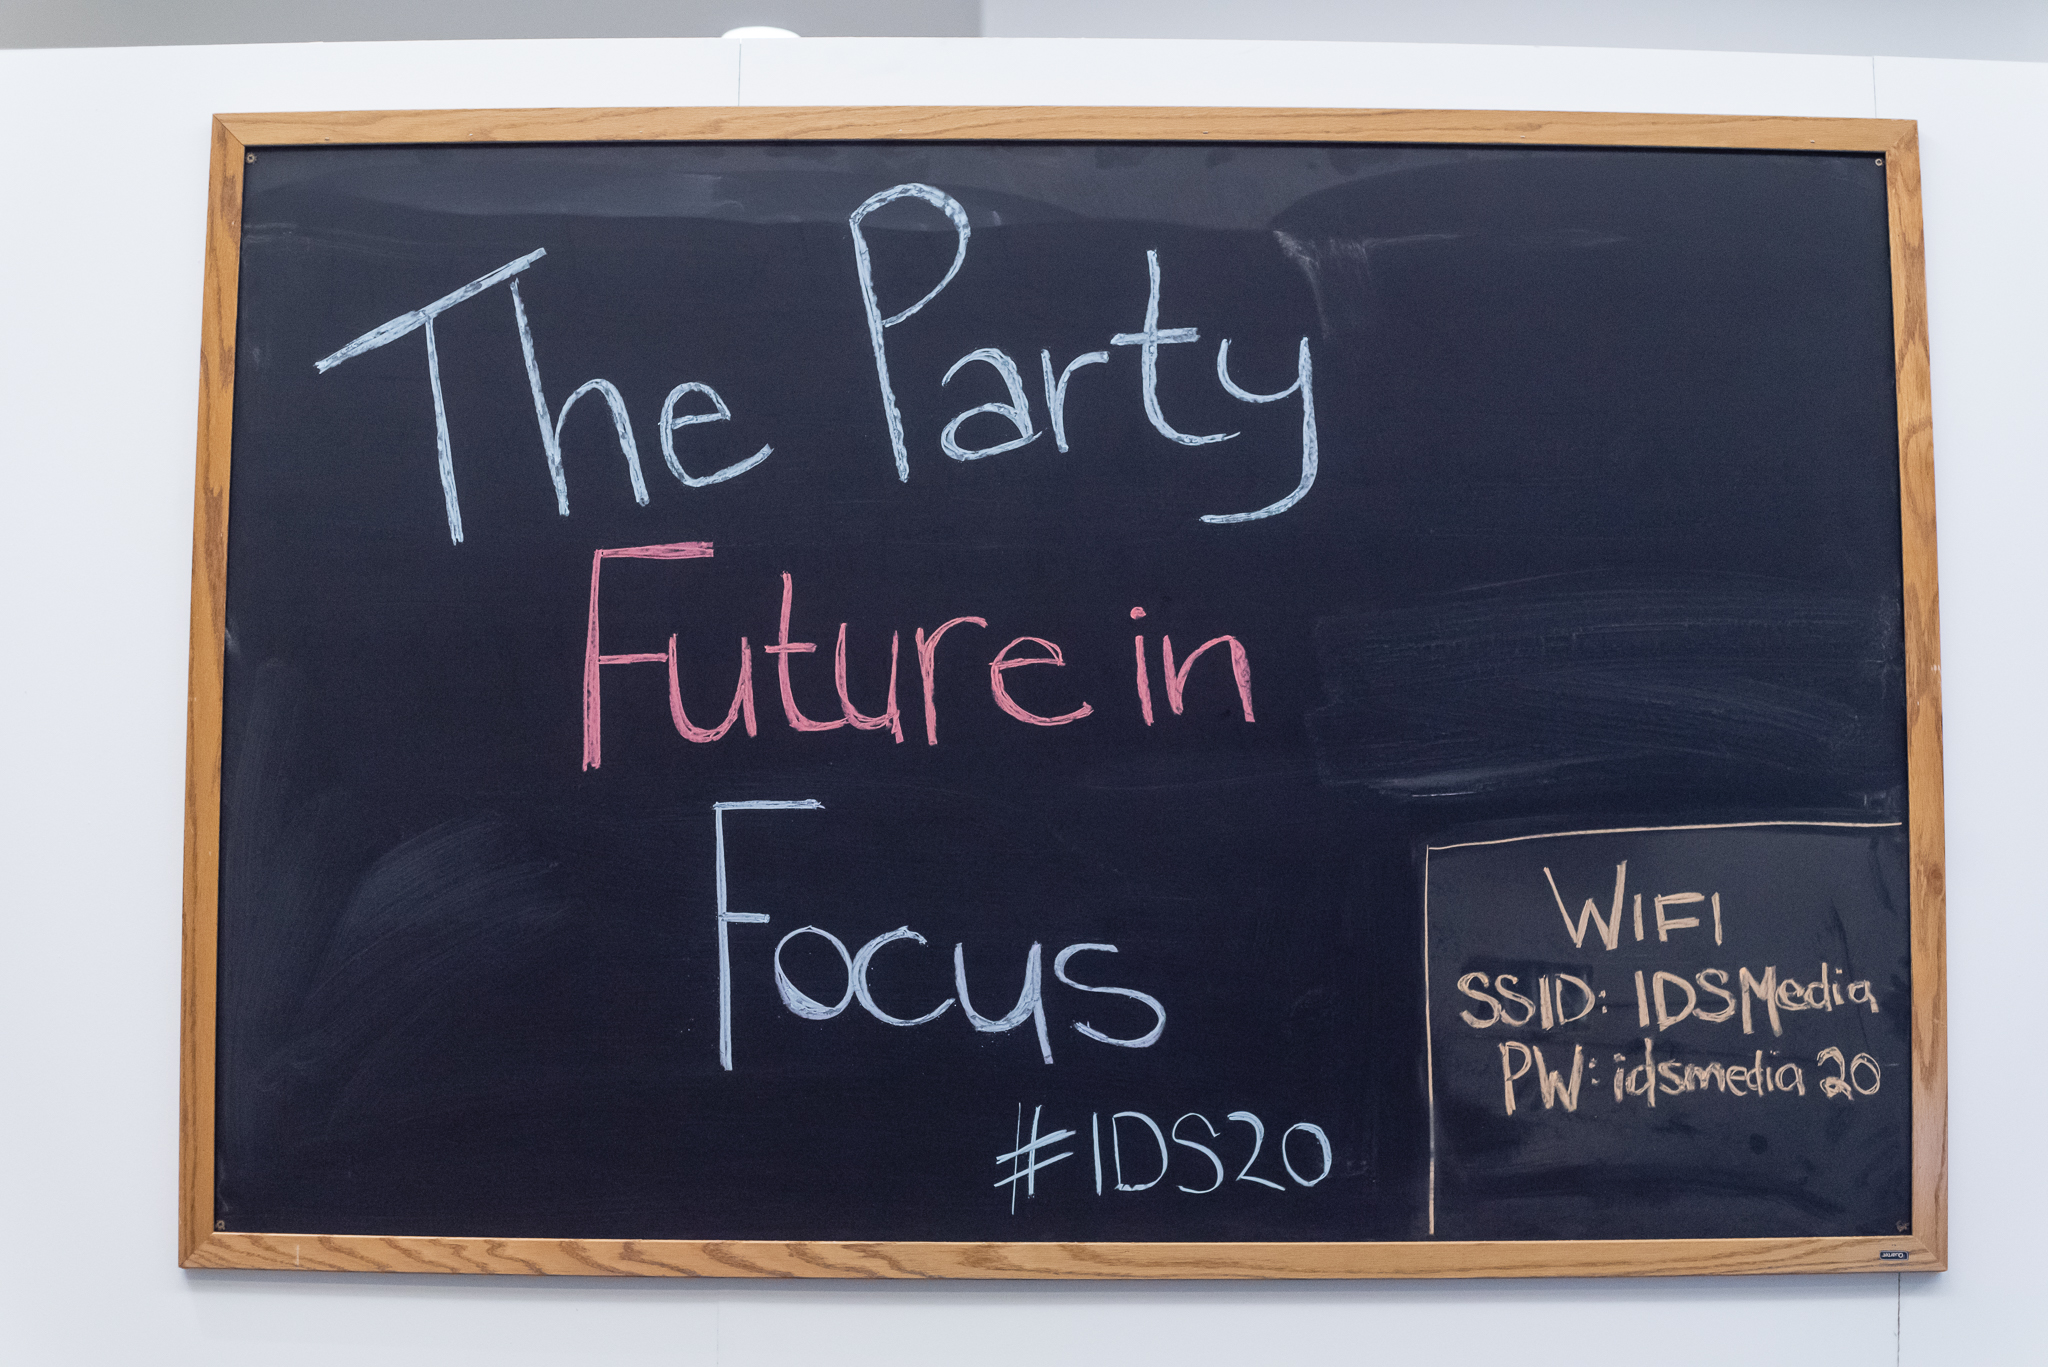 The Party
Future in
Focus
#IDS20
WIFI
SSID: IDSMedia
PW: idsmedia20
Quartet